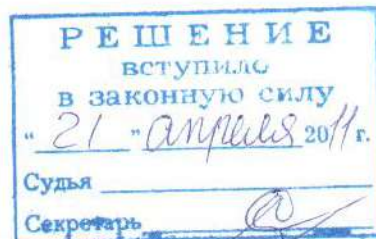 РЕШЕНИЕ
вступило
в законную силу
"21" апреля 2011 г.
Судья
Секретарь